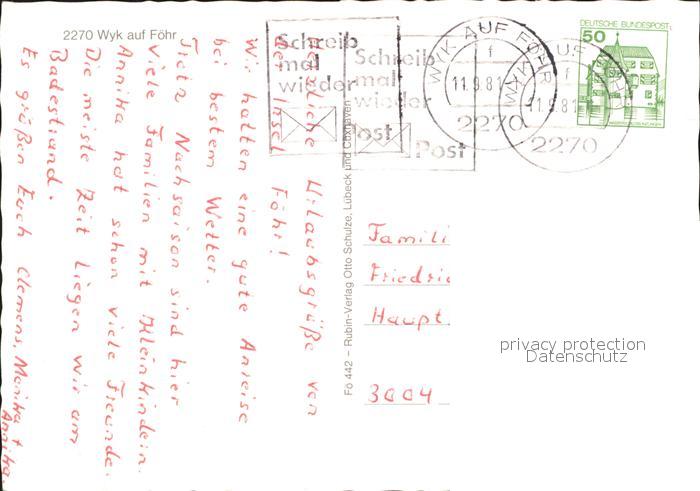 2270 Wyk auf Föhr
Herzliche Urlaubsgrüße von
der Insel Föhr!
Wir hatten eine gute Anreise
bei bestem Wetter.
Trotz Nachsaison sind hier
viele Familien mit Kleinkindern.
Annika hat schon viele Freunde.
Die meiste Zeit liegen wir am
Badestrand.
Es grüßen Euch Clemens, Monika +
Annika.
Fö 442 – Rubin-Verlag Otto Schulze, Lübeck und Cuxhaven
Schreib
mal
wieder
Post
Schreib
mal
wieder
Post
WYK AUF FÖHR
f
11.9.81
2270
WYK AUF FÖHR
f
11.9.81
2270
DEUTSCHE BUNDESPOST
50
Famili
Friedric
Haupt
3004
privacy protection
Datenschutz